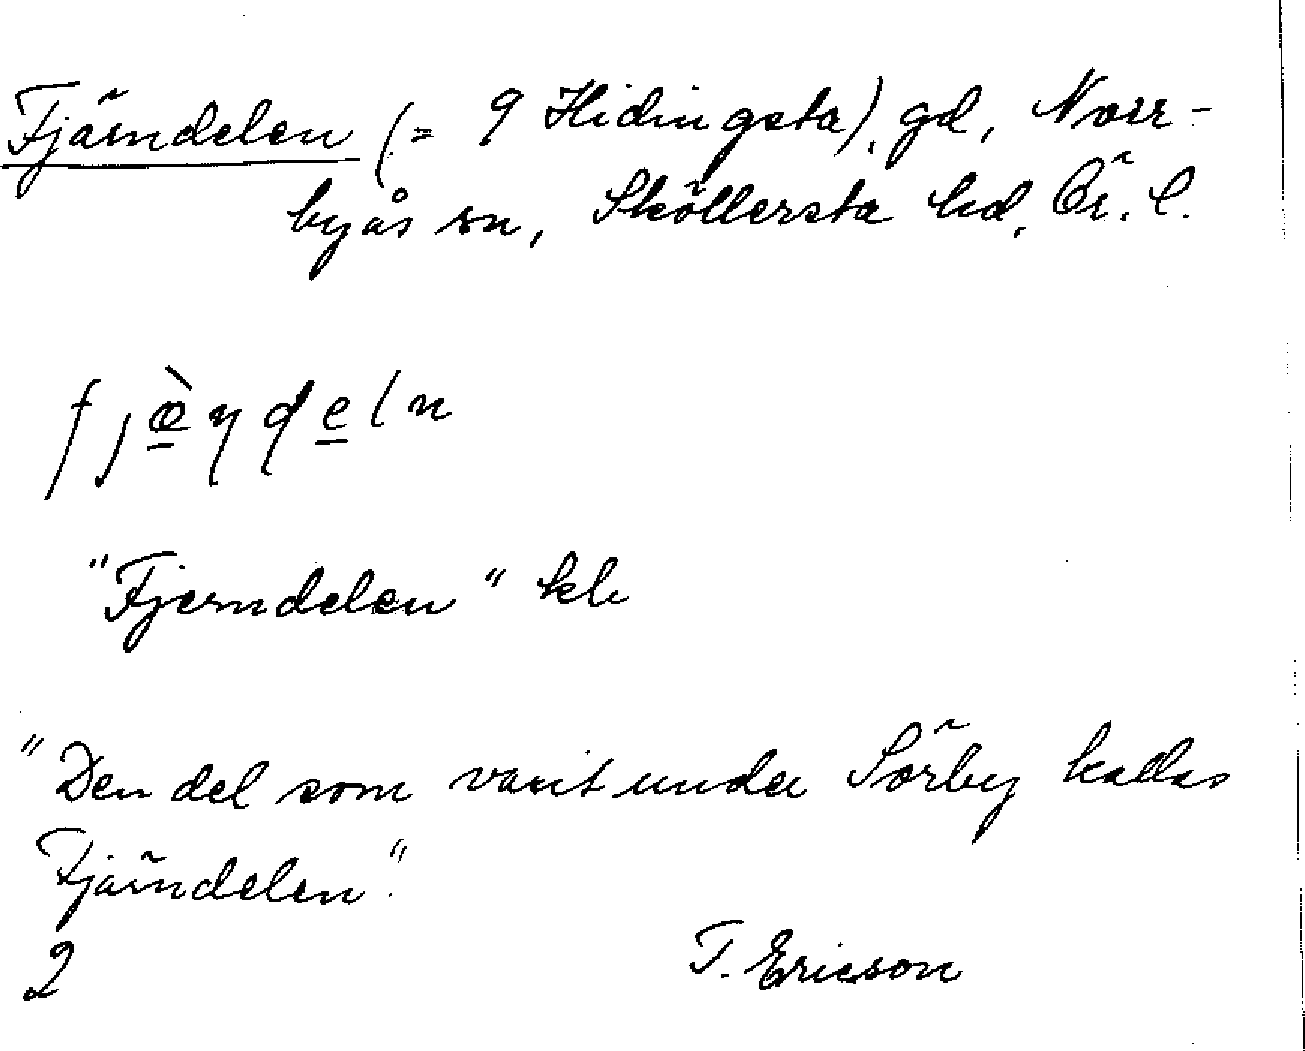 Fjärndelen (= 9 Hidingsta), gd, Norr-
byås sn, Sköllersta hd, Ör. l.
fjæ̀ɳɖeln
"Fjerndelen" kb
"Den del som varit under Sörby kallas
Fjärndelen".
2 T. Ericson